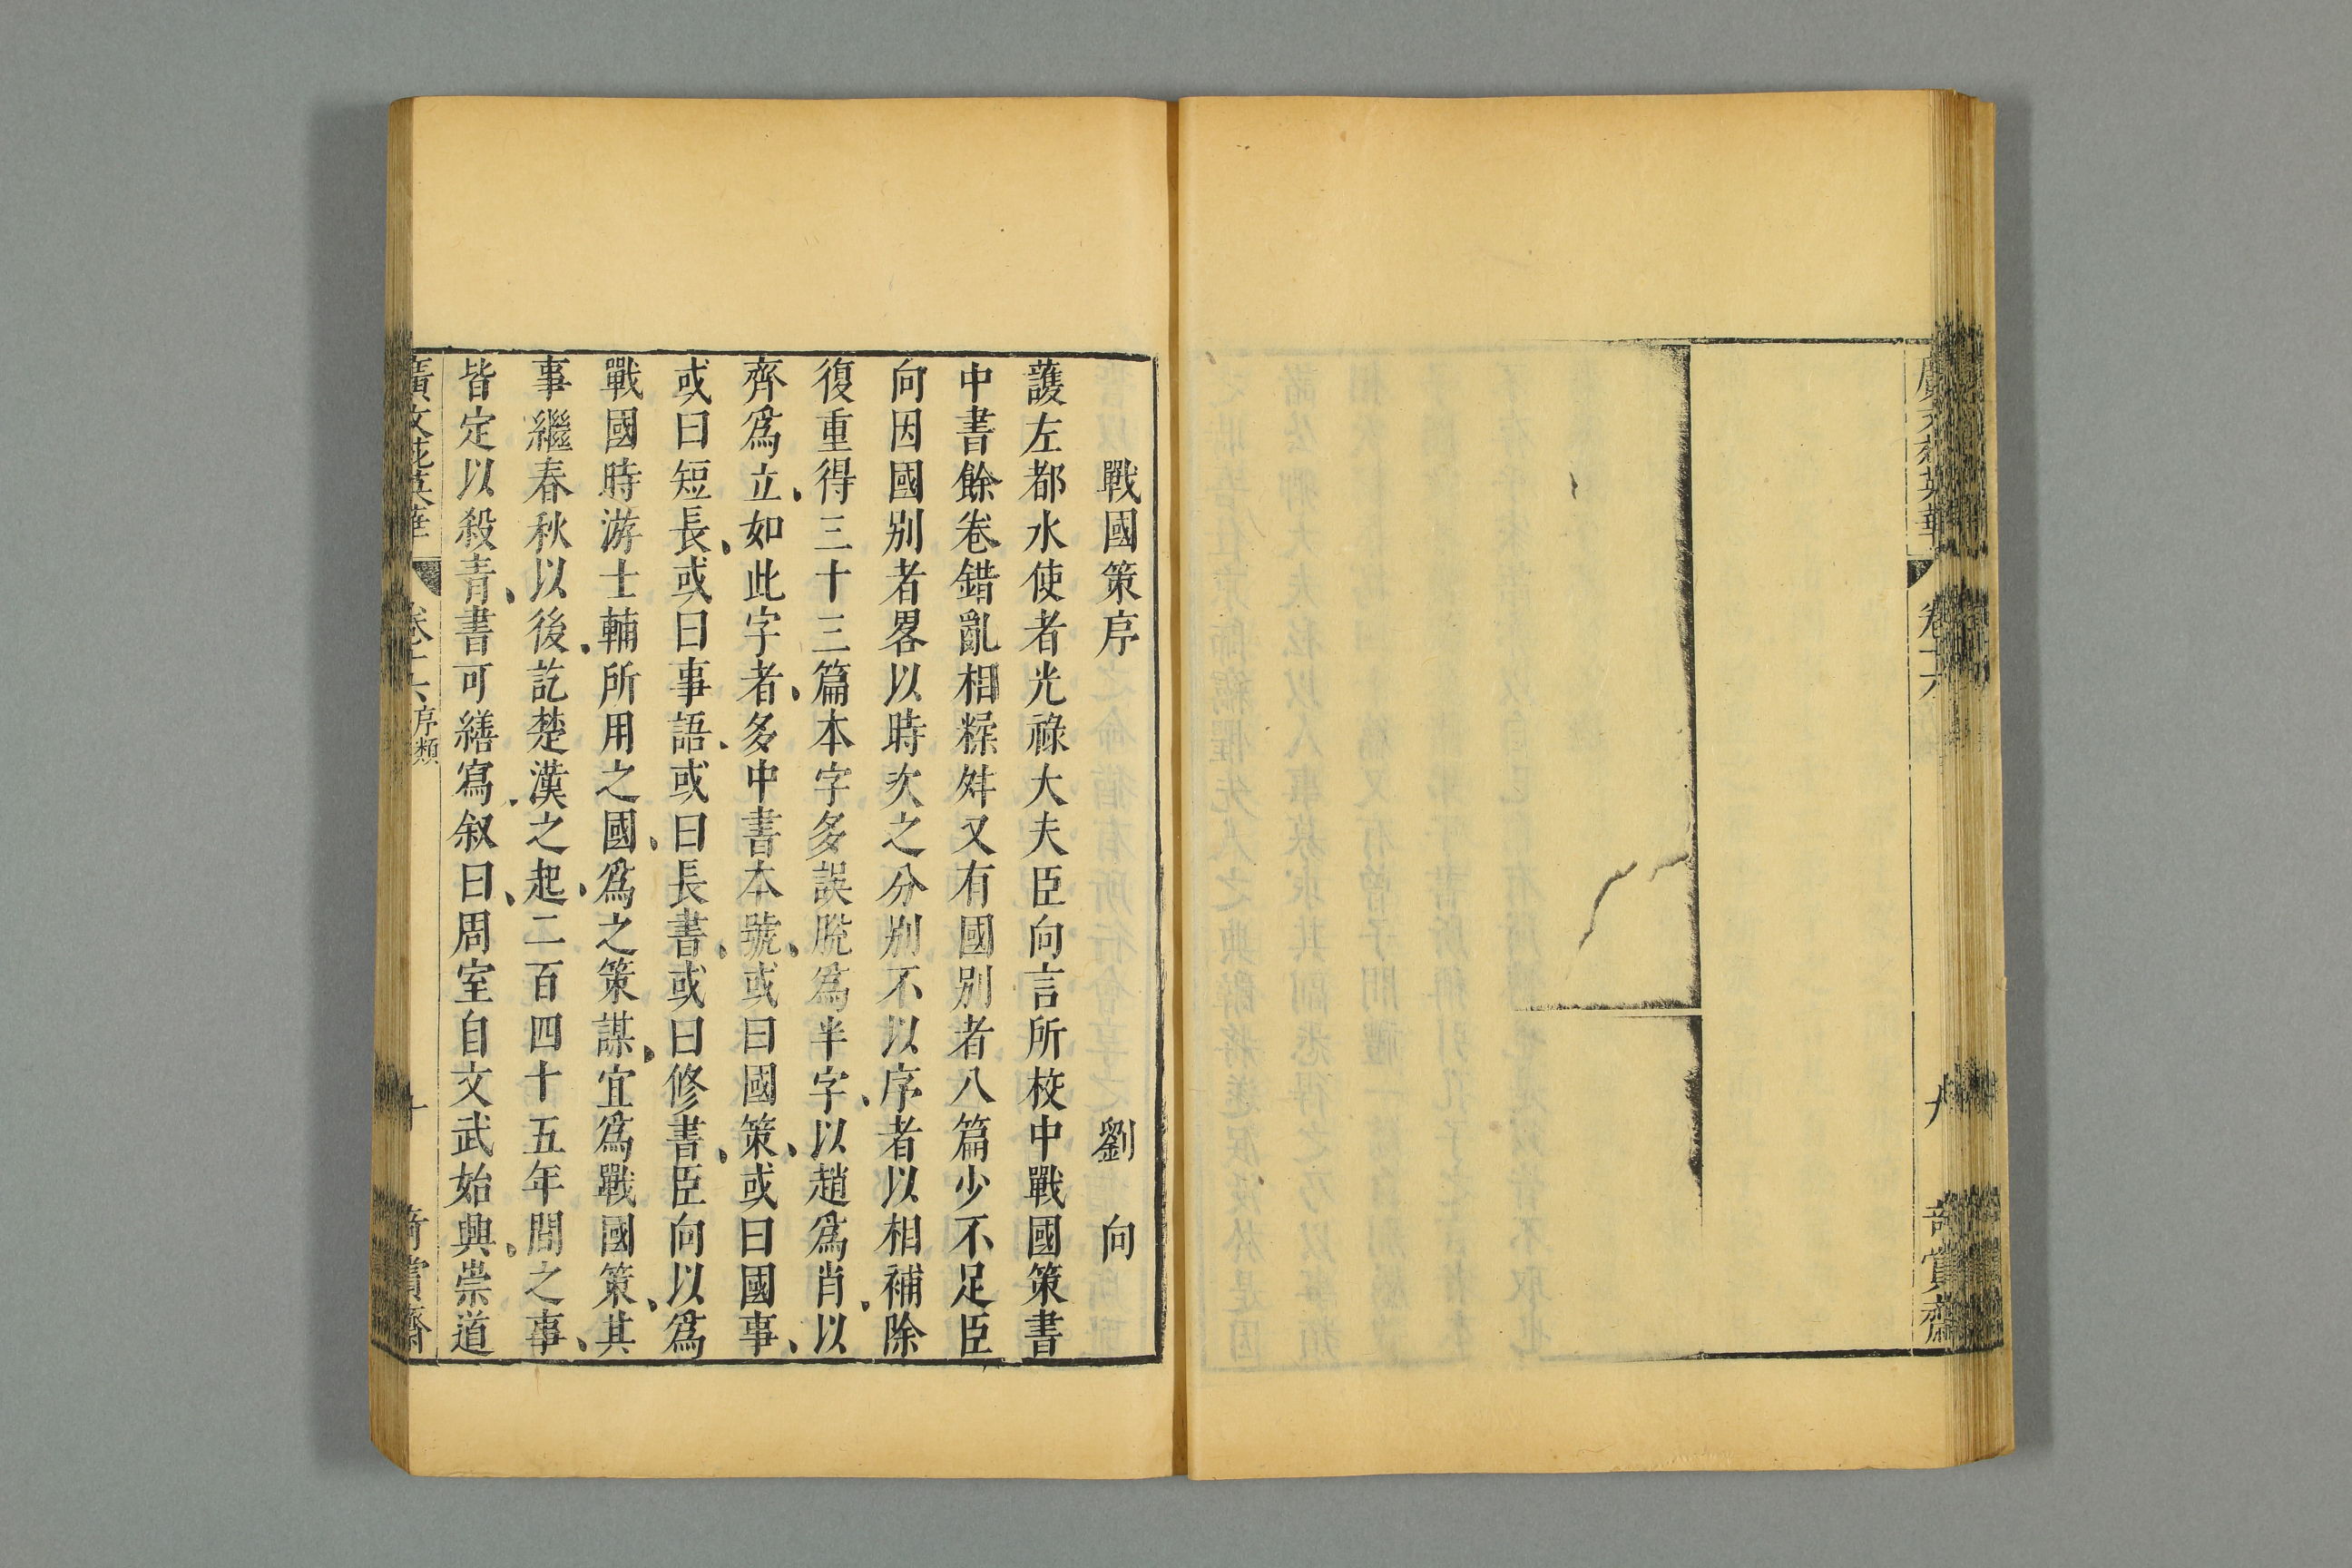 戰國策序 劉向
護左都水使者光祿大夫臣向言所校中戰國策書
中書餘卷錯亂相糅舛又有國別者八篇少不足臣
向因國別者畧以時次之分別不以序者以相補除
復重得三十三篇本字多誤脫爲半字、以趙爲肖、以
齊爲立、如此字者、多中書本號、或曰國策、或曰國事、
或曰短長、或曰事語、或曰長書、或曰修書、臣向以爲
戰國時游士輔所用之國、爲之策謀、宜爲戰國策、其
事繼春秋以後、訖楚漢之起、二百四十五年間之事、
皆定以殺青、書可繕寫、叙曰、周室自文武始興、崇道
廣文苑英華 卷十六 序類 十 奇賞齋